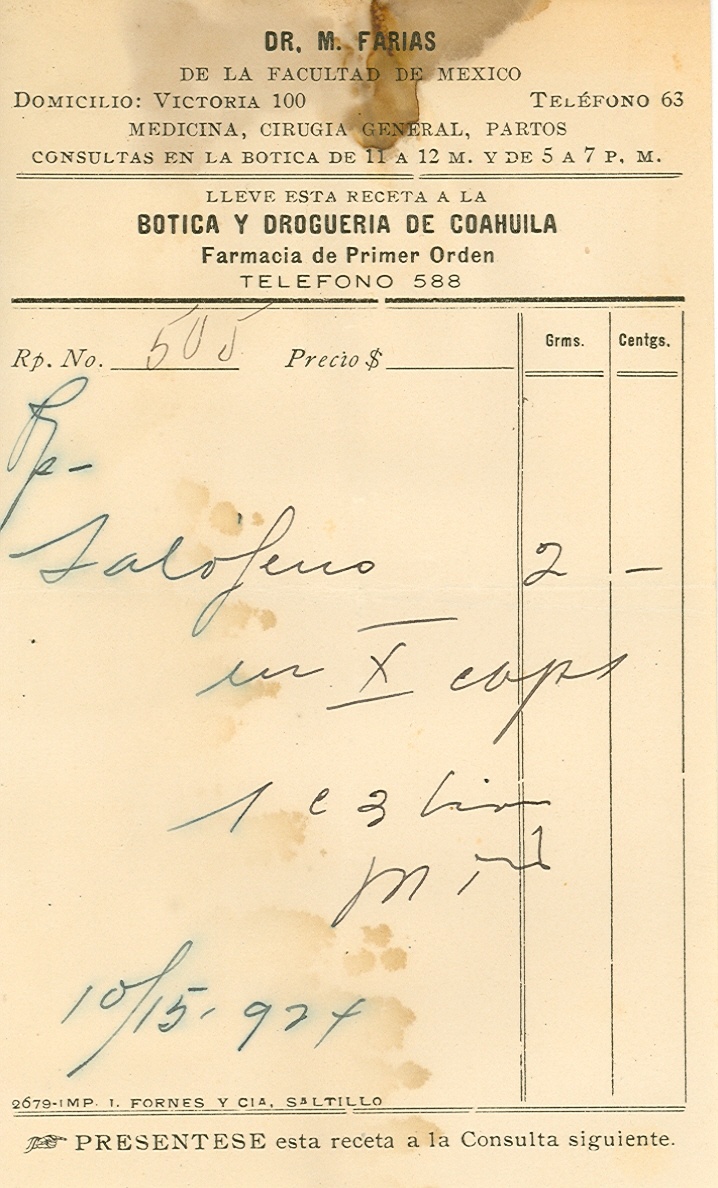 DR. M. FARIAS
DE LA FACULTAD DE MEXICO
DOMICILIO: VICTORIA 100 TELÉFONO 63
MEDICINA, CIRUGIA GENERAL, PARTOS
CONSULTAS EN LA BOTICA DE 11 A 12 M. Y DE 5 A 7 P. M.
LLEVE ESTA RECETA A LA
BOTICA Y DROGUERIA DE COAHUILA
Farmacia de Primer Orden
TELEFONO 588
Grms. Centgs.
Rp. No. 505 Precio $
Rp-
Salofeno 2 -
en X caps
1 c 3
10/15-924
2679-IMP. I. FORNES Y CIA, SALTILLO
PRESENTESE esta receta a la Consulta siguiente.